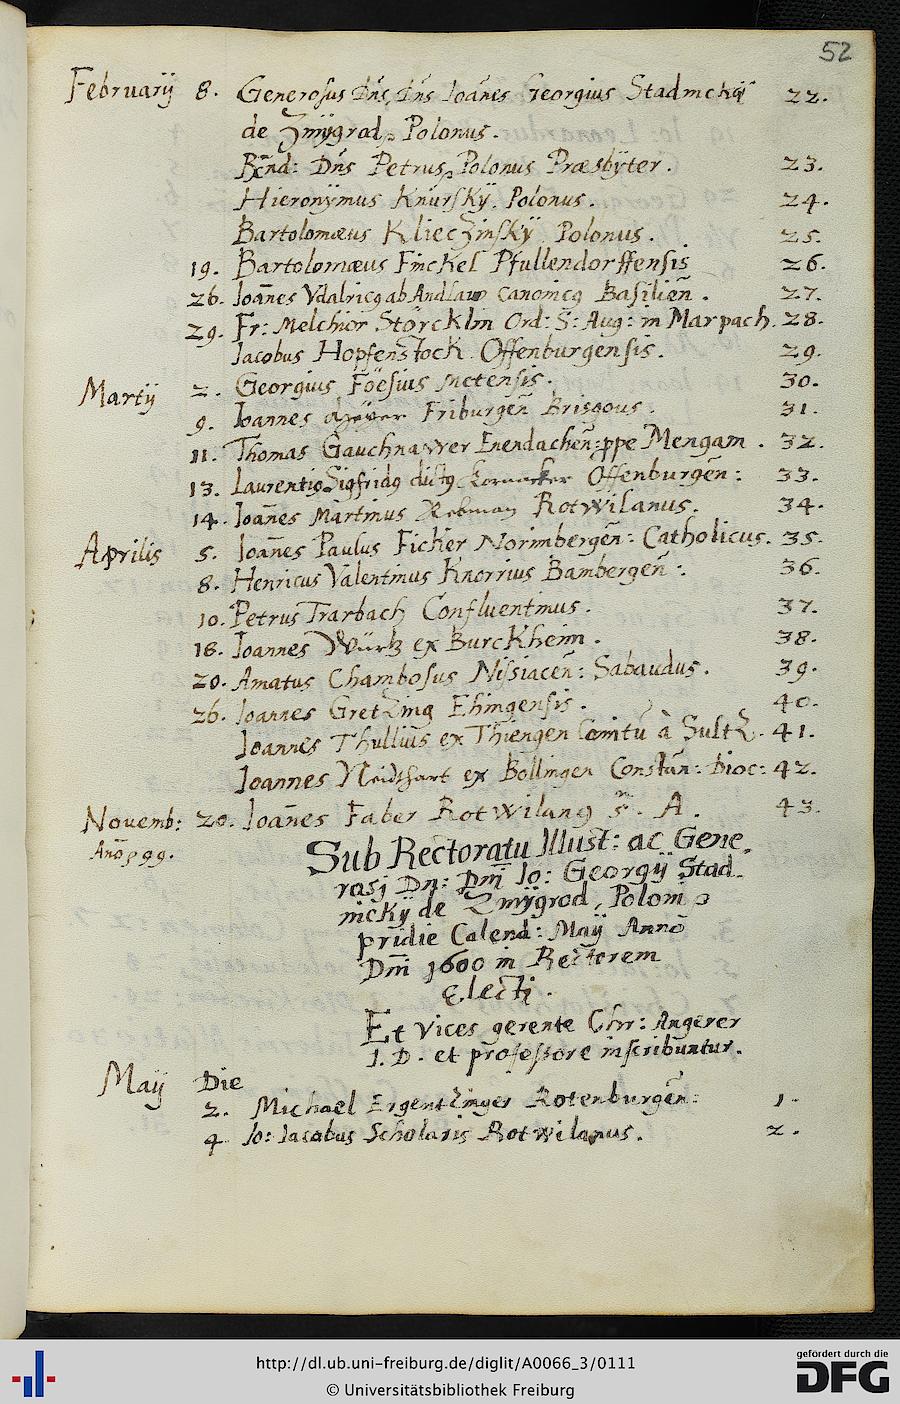 52
Februarÿ 8. Generosus Dn̄s, Dn̄s Ioan̄es Georgius Stadnickÿ 22.
de Zmÿgrod, Polonus.
Rn̄d: Dn̄s Petrus, Polonus Præsbÿter. 23.
Hieronÿmus Knurskÿ. Polonus. 24.
Bartolomæus Klieczinskÿ Polonus. 25.
19. Bartolomæus Finckel Pfullendorffensis 26.
26. Ioan̄es Vdalricq ab Andlaw canonicq Basilien̄. 27.
29. Fr: Melchior Störcklin Ord: S: Aug: in Marpach. 28.
Jacobus Hopfenstock Offenburgensis. 29.
Martÿ 2. Georgius Foësius Metensis. 30.
9. Ioannes Friburgen̄ Brisgous. 31.
11. Thomas Gauchnawer Enendachen̄: ꝓpe Mengam. 32.
13. Laurentiq Sigfridq dictq Offenburgen̄: 33.
14. Ioan̄es Martinus Rebman Rotwilanus. 34.
Aprilis 5. Ioan̄es Paulus Ficker Norimbergen̄: Catholicus. 35.
8. Henricus Valentinus Knorrius Bambergen̄: 36.
10. Petrus Trarbach Confluentinus. 37.
18. Ioannes Würtz ex Burckheim. 38.
20. Amatus Chambosus Nissiacen̄: Sabaudus. 39.
26. Ioannes Gretzing Ehingensis. 40.
Ioannes Thullius ex Thiengen Comitu à Sultz. 41.
Ioannes Neidthart ex Bollingen Constan̄: Dioc: 42.
Novemb: 20. Ioan̄es Faber Rotwilanq S. A. 43.
An̄o 99.
Sub Rectoratu Illust: ac Gene,
rosj Dn̄: Dm̄ Io: Georgÿ Stad,
nickÿ de Zmÿgrod, Poloni
pridie Calend: Maÿ Anno
Dm̄ 1600 in Rectorem
Electj.
Et vices gerente Chr: Angerer
I. D. et professore inscribuntur.
Maÿ Die
2. Michael Ergentzinger Rotenburgen̄: 1.
4 Io: Iacobus Scholaris Rotwilanus. 2.
http://dl.ub.uni-freiburg.de/diglit/A0066_3/0111
© Universitätsbibliothek Freiburg
gefördert durch die
DFG